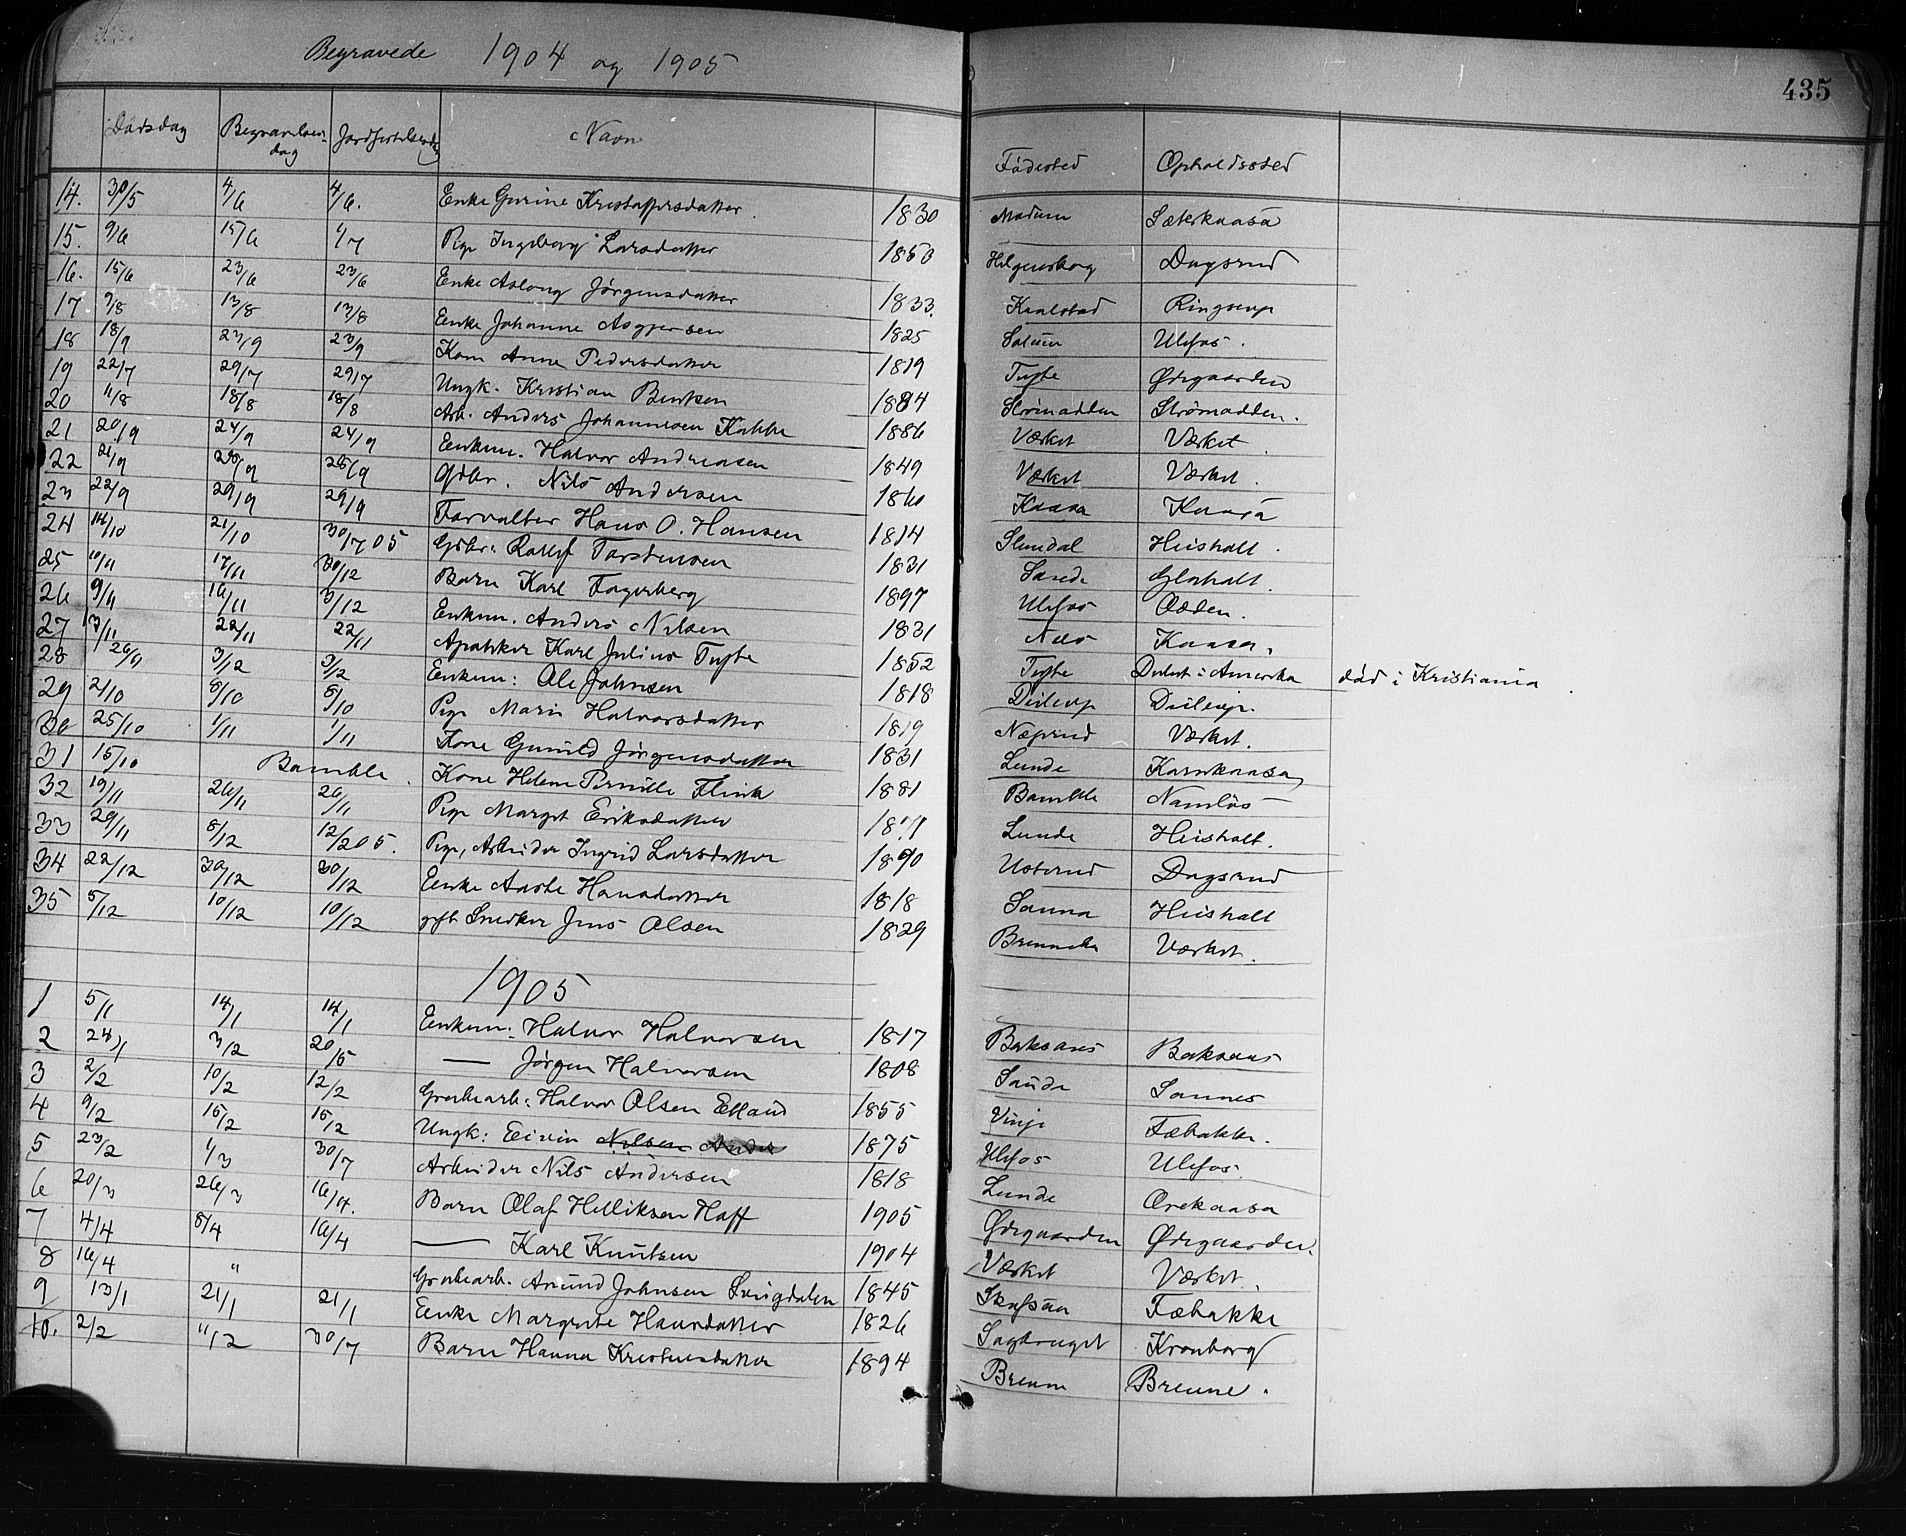 Begravede 1904 og 1905
435
Dødsdag Begravelses-dag Jordfæstelsesdag Navn Fødested Opholdssted
14. 30/5 4/6 4/6. Enke Gurine Kristoffersdatter. 1830 Modum Sæterkaasa
15. 9/6 15/6 1/7 Pige Ingeborg Larsdatter 1850 Helgenshog Dagsrud
16. 15/6 23/6 23/6 Enke Aslaug Jørgensdatter 1833. Kaalstad Ringsevp
17 9/8 13/8 13/8 Enke Johanne Asgjersen 1825 Solum Ulefos.
18 18/9 23/9 23/9 Kone Anne Pedersdatter 1819 Tufte Ødegaarden
19 22/7 29/7 29/7 Ungk. Kristian Bentsen 1884 Strømodden Strømodden.
20 11/8 18/8 18/8 Arb. Anders Johannesen Kabbe 1886 Værket Værket
21 20/9 24/9 24/9 Enkem. Halvor Andreasen 1849 Værket Værket.
22 21/9 28/9 28/9 Gdbr. Nils Andersen 1860 Kaasa Kaasa
23 22/9 29/9 29/9 Forvalter Hans O. Hansen 1814 Slemdal Heisholt.
24 14/10 21/10 30/7 05 Gdbr: Rollef Torstensen 1831 Sande Gloholt.
25 10/11 17/11 30/12 Barn Karl Fagerberg 1897 Ulefos Odden.
26 9/11 16/11 3/12 Enkem. Anders Nilsen 1831 Næs Kaasa.
27 13/11 22/11 22/11 Apotheker Karl Julius Tufte 1852 Tufte Delvist i Amerika død i Kristiania.
28 26/9 3/12 3/2 Enkem: Ole Johnsen 1818 Deilevp Deilevp.
29 2/10 8/10 8/10 Pige Maren Halvorsdatter 1819 Næprud Værket.
30 25/10 1/11 1/11 Kone Gunild Jørgensdatter 1831 Lunde Kornkaasa
31 15/10 Bamble. Kone Helene Pernille Flink 1881 Bamble Namløs
32 19/11 26/11 26/11 Pige Margit Eriksdatter Lunde Heisholt.
33 29/11 8/12 12/2 05. Pige, Arbeider Ingrid Larsdatter 1890 Usterud Dagsrud
34 22/12 30/12 30/12 Enke Aaste Hansdatter 1818 Sanna Heisholt
35 5/12 10/12 10/12 gift Snedker Jens Olsen 1829 Brenneka Værket.
1905
1 5/1 14/1 14/1 Enkem: Halvor Halvorsen 1817 Boksaas Boksaas
2 28/1 3/2 20/5 — Jørgen Halvorsen 1808 Saude Sannes
3 2/2 10/2 12/2 Grubearb: Halvor Olsen Edland 1855 Vinje Fæbakke.
4 9/2 15/2 15/2 Ungk: Eivin Nilsen Ander 1875 Ulefos Ulefos.
5 23/2 1/3 30/7 Arbeider Nils Andersen 1818 Lunde Orekaasa
6 20/3 26/3 16/4. Barn Olaf Helliksen Haff 1905 Ødegaarden Ødegaarden.
7 4/4 8/4 16/4 — Karl Knutsen 1904 Værket Værket.
8 16/4 " Grubearb. Amund Johnsen Lingdalen 1845 Skafsaa Fæbakke
9 13/1 21/1 21/1 Enke Margrete Hansdatter 1826 Sagbruget Kronborg
10. 2/2 11/2 30/7 Barn Hanna Kristensdatter 1894 Brenne Brenne.